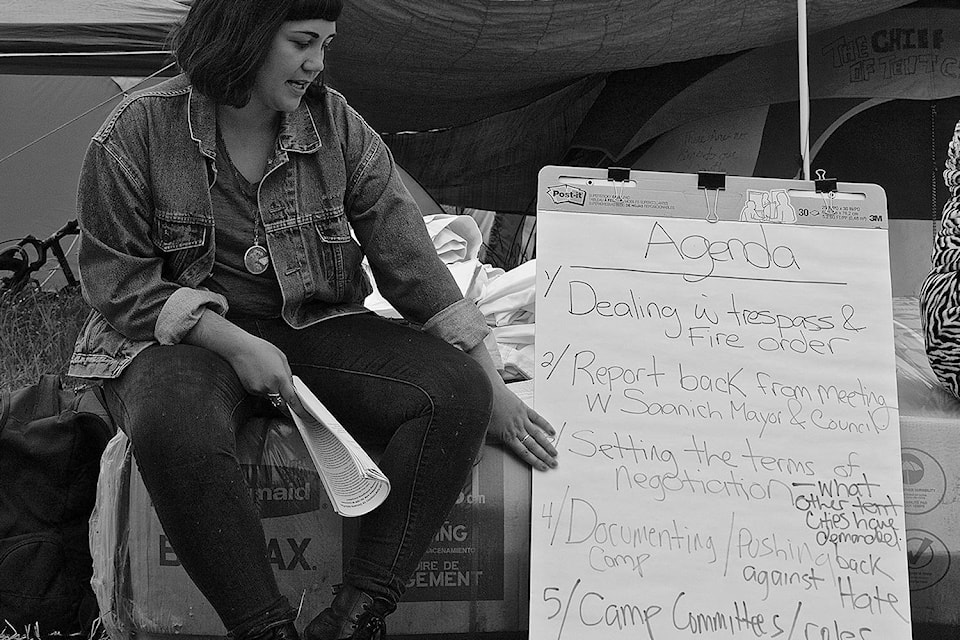 THE CHIEF
OF TENT C
Post-it
30
3M
Agenda
1/ Dealing w trespass &
Fire order
2/ Report back from meeting
w Saanich Mayor & Council
/ Setting the terms of
Negoticiation
- what
other tent
cities have
demanded.
4/ Documenting / Pushing back
Camp against Hate
5/ Camp Committees / roles
maid
AX.
ING
ACENAMIENTO
OIRE DE
GEMENT